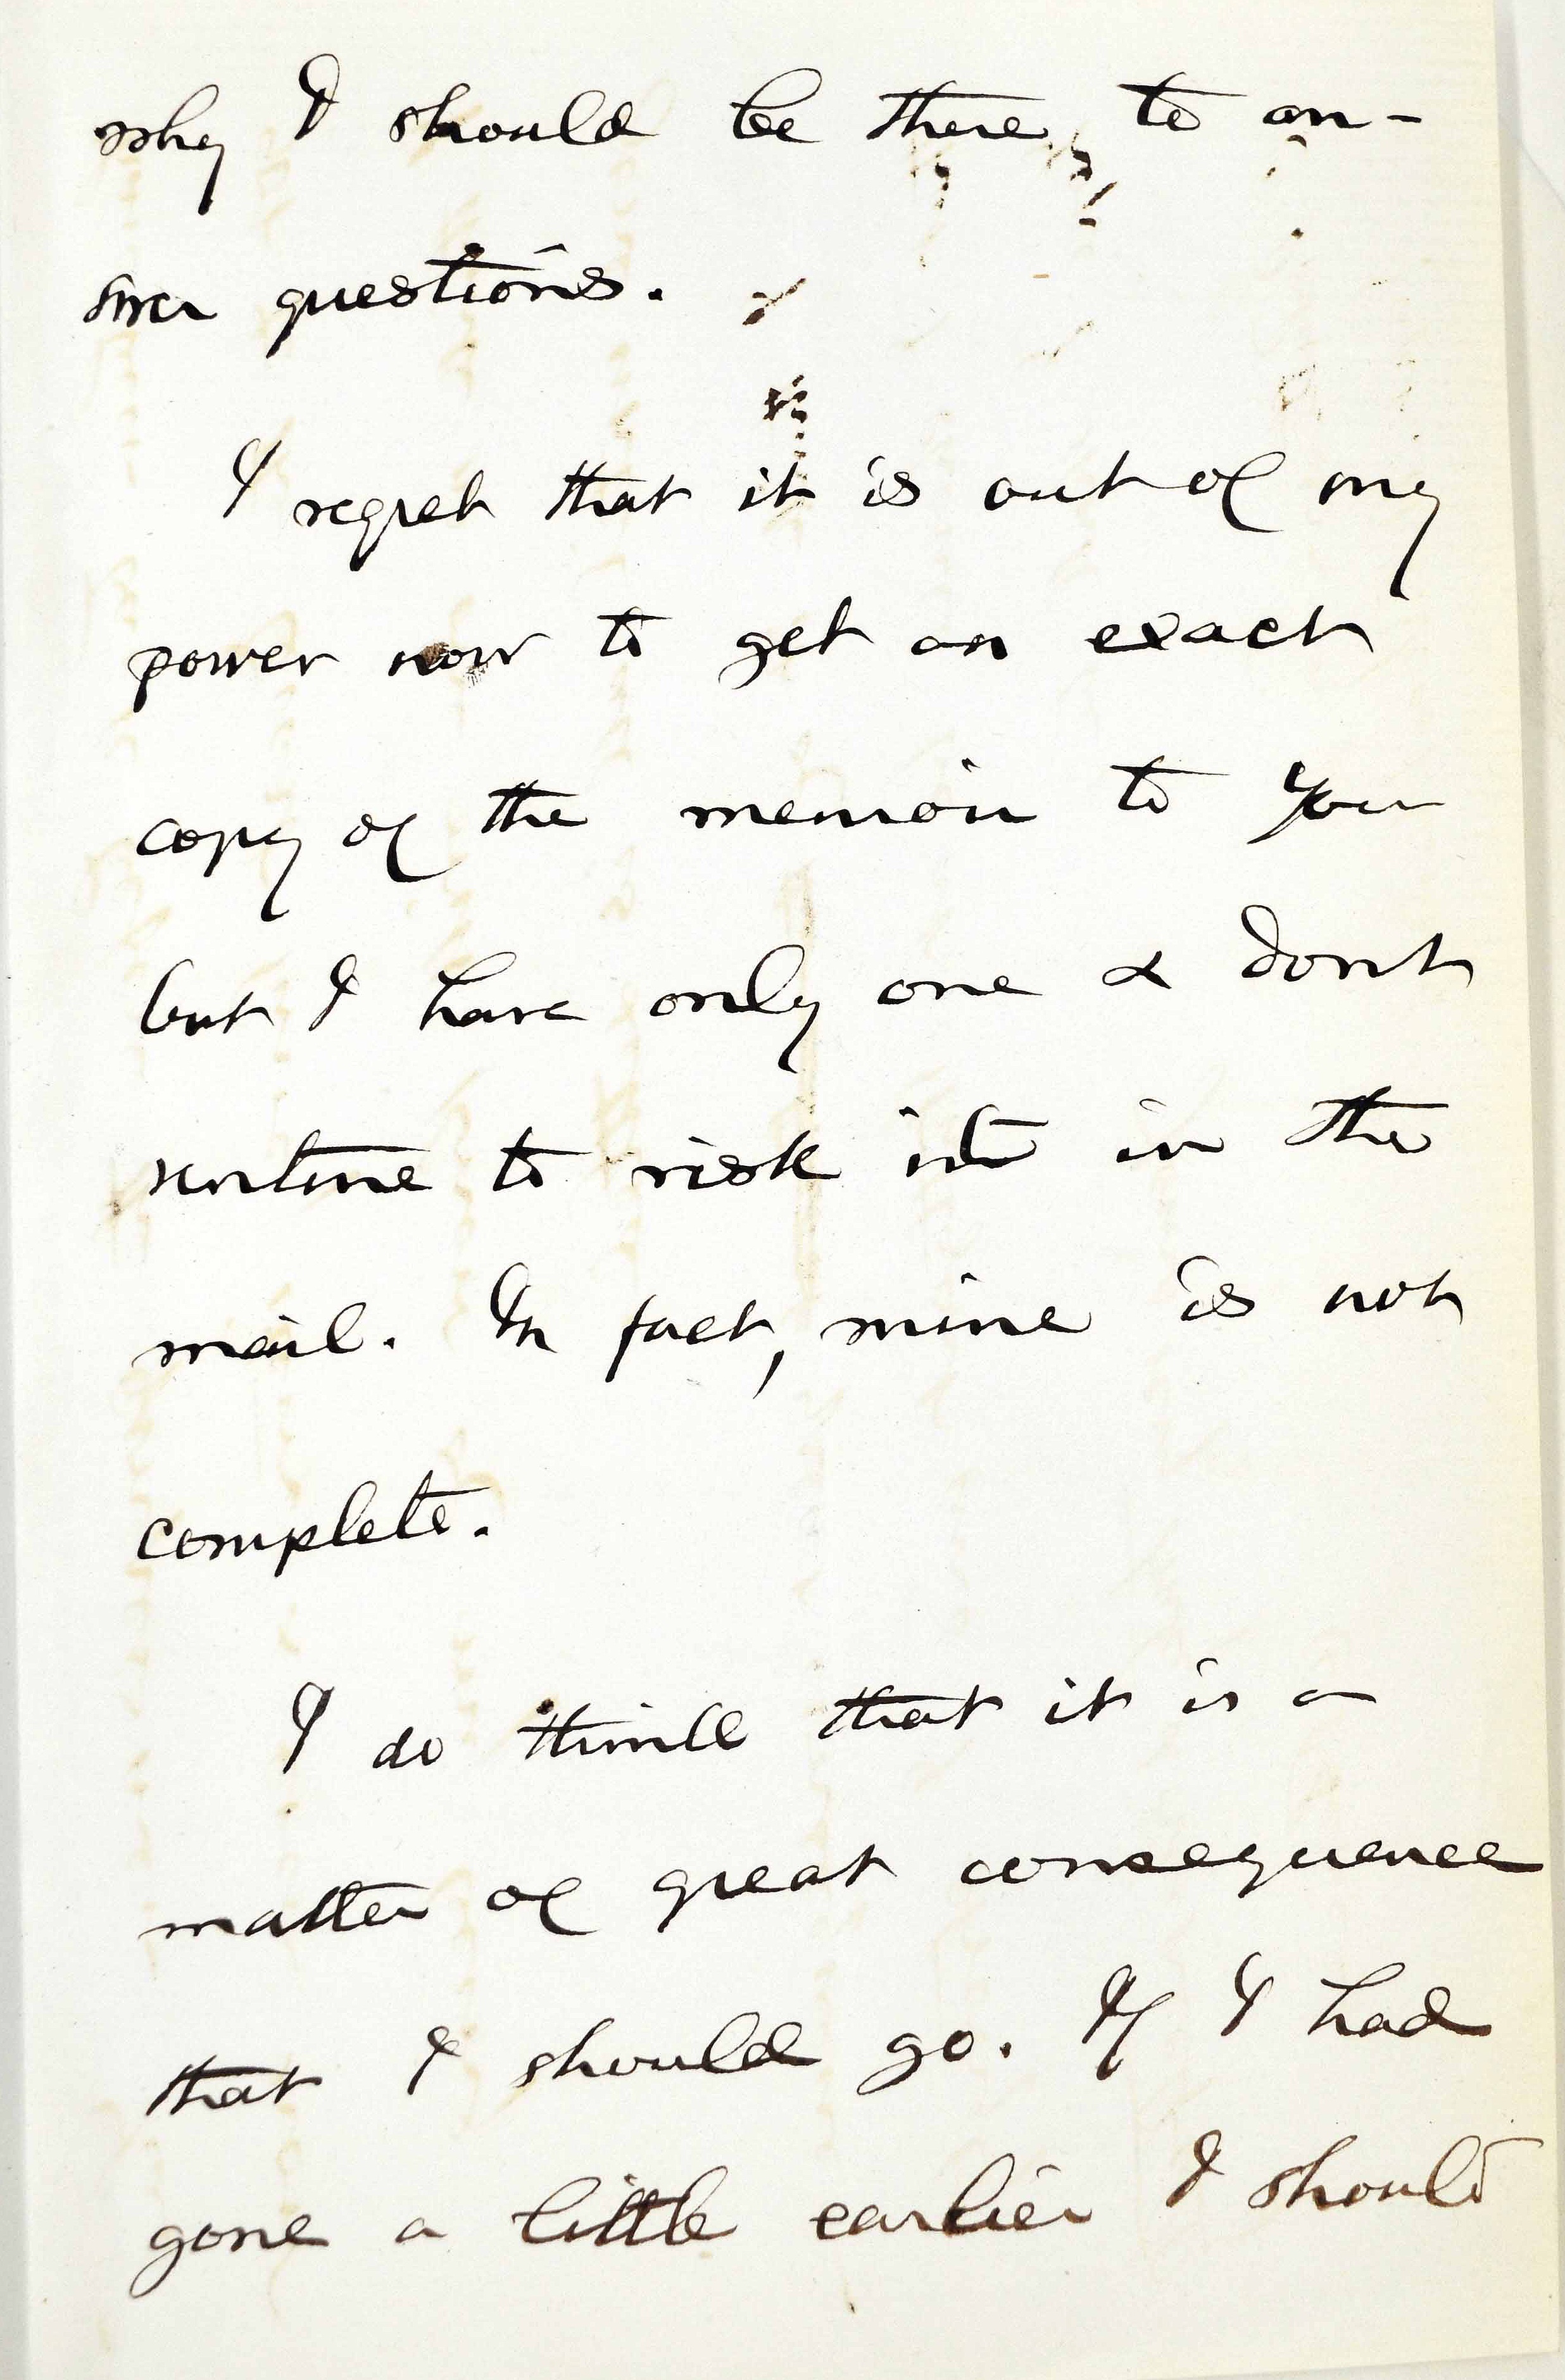 why I should be there, to an-
swer questions.
I regret that it is out of my
power now to get an exact
copy of the memoir to you
but I have only one & dont
venture to risk it in the
mail. In fact, mine is not
complete.
I do think that it is a
matter of great consequence
that I should go. If I had
gone a little earlier I should